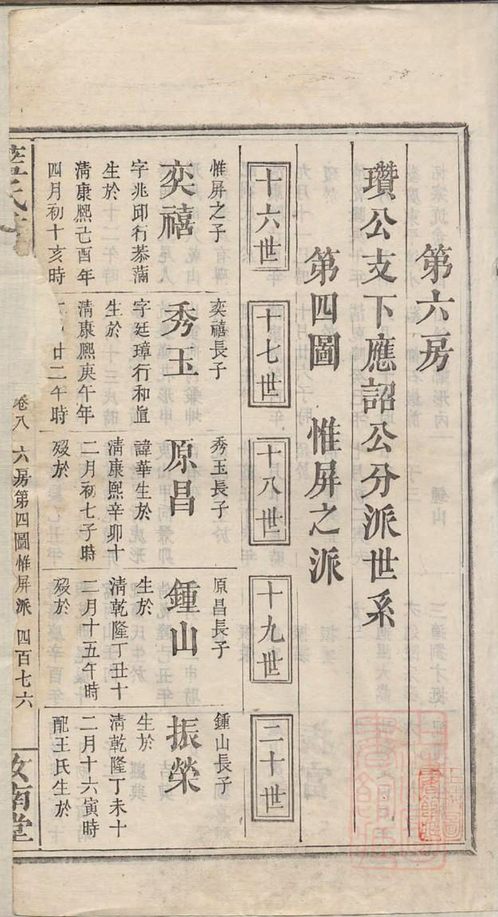 第六房
瓚公支下應詔公分派世系
第四圖 惟屏之派
十六世
十七世
十八世
十九世
二十世
惟屏之子
奕禧
字兆邱行恭
生於
清康熙己酉年
四月初十亥時
奕禧長子
秀玉
字廷璋行和
生於
清康熙庚午年
廿二午時
秀玉長子
原昌
諱華生於
清康熙辛卯十
二月初七子時
歿於
原昌長子
鍾山
生於
清乾隆丁丑十
二月十五午時
歿於
鍾山長子
振榮
生於
清乾隆丁未十
二月十六寅時
配王氏生於
卷八 六房第四圖惟屏派 四百七六
汝南堂